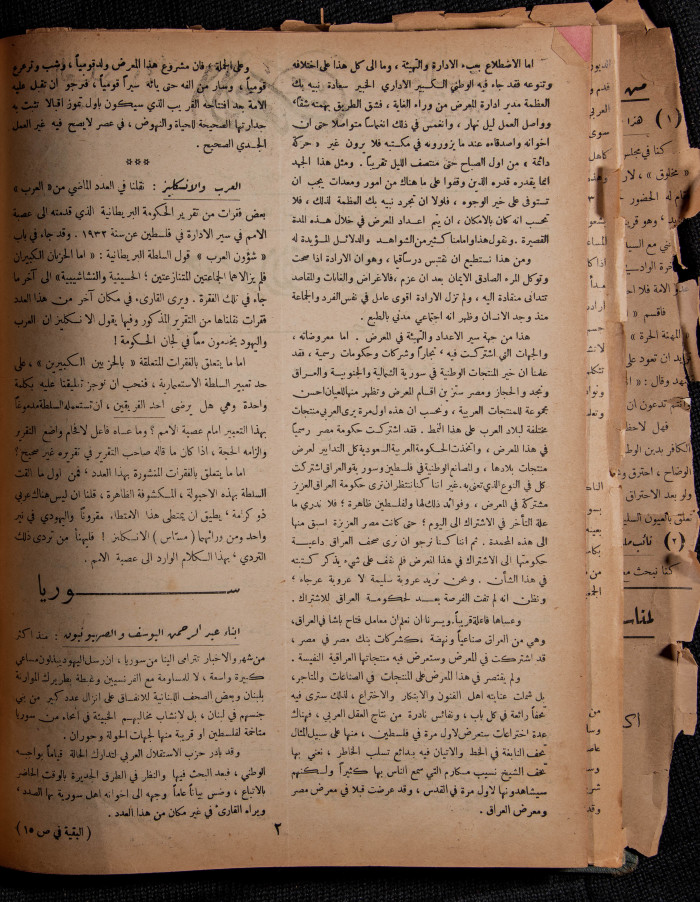 اما الاضطلاع بعبء الادارة والتهيئة ، وما الى كل هذا على اختلافه
وتنوعه فقد جاء فيه الوطني الكبير الاداري الخبير سعادة نبيه بك
العظمة مدير ادارة المعرض من وراء الغاية ، فشق الطريق بهمته شقاً
وواصل العمل ليل نهار ، وانغمس في ذلك انغماساً متواصلا حتى ان
اخوانه واصدقاءه عندما يزورونه في مكتبه فلا يرون غير « حركة
دائمة » من اول الصباح حتى منتصف الليل تقريباً . ومثل هذا الجهد
انما يقدره قدره الذين وقفوا على ما هناك من امور ومعدات يجب ان
تستوفى على خير الوجوه ، فلولا ان تجرد نبيه بك العظمة لذلك ، فلا
نحسب انه كان بالامكان ، ان يتم اعداد المعرض في خلال هذه المدة
القصيرة . ونقول هذا وامامنا كثير من الشواهد والدلائل المؤيدة له
ومن هذا نستطيع ان نقتبس درساً قيماً ، وهو ان الارادة اذا صحت
وتوكل المرء الصادق الايمان بعد ان عزم ، فالاغراض والغايات والمقاصد
تتدانى منقادة اليه ، ولم تزل الارادة اقوى عامل في نفس الفرد والجماعة
منذ وجد الانسان وظهر انه اجتماعي مدني بالطبع .
هذا من جهة سير الاعداد والتهيئة في المعرض . اما معروضاته ،
والجهات التي اشتركت فيه ، تجاراً وشركات وحكومات رسمية ، فقد
علمنا ان خير المنتجات الوطنية في سورية الشمالية والجنوبية والعراق
ونجد والحجاز ومصر ستزين اقسام المعرض وتظهر منها للعيان احسن
مجموعة للمنتجات العربية ، ونحسب ان هذه اول مرة يرى العربي منتجات
مختلفة لبلاد العرب على هذا النمط . فقد اشتركت حكومة مصر رسمياً
في هذا المعرض ، واتخذت الحكومة العربية السعودية كل التدابير لعرض
منتجات بلادها ، والمصانع الوطنية في فلسطين وسورية والعراق اشتركت
كل في النوع الذي تعنى به . غير اننا كنا ننتظر ان نرى حكومة العراق العزيز
مشتركة في المعرض ، وفوائد ذلك لها ولفلسطين ظاهرة ؛ فلا ندري ما
علة التأخر في الاشتراك الى اليوم ؛ حتى كانت مصر العزيزة اسبق منها
الى هذه المحمدة . ثم اننا كنا نرجو ان نرى صحف العراق داعية
حكومتها الى الاشتراك في هذا المعرض فلم نقف على شيء يذكر كتبته
في هذا الشأن . ونحن نريد عروبة سليمة لا عروبة عرجاء ؛
ونظن انه لم تفت الفرصة بعد لحكومة العراق للاشتراك .
وعساها فاعلة قريباً . ويسرنا ان نعلم ان معامل فتاح باشا في العراق ،
وهي من العراق صناعياً ونهضة ، كشركات بنك مصر في مصر ،
قد اشتركت في المعرض وستعرض فيه منتجاتها العراقية النفيسة .
ولم يقتصر في هذا المعرض على المنتجات في الصناعات والمتاجر ،
بل شملت عنايته اهل الفنون والابتكار والاختراع ، لذلك سترى فيه
تحفاً رائعة في كل باب ، ونفائس نادرة من نتاج العقل العربي ، فهناك
عدة اختراعات ستعرض لاول مرة في فلسطين ، منها على سبيل المثال
تحف النابغة في الخط والاتيان فيه ببدائع تسلب الخاطر ، نعني بها
تحف الشيخ نسيب مكارم التي سمع الناس بها كثيراً ولكنهم
سيشاهدونها لاول مرة في القدس ، وقد عرضت قبلا في معرض مصر
ومعرض العراق .
وعلى الجملة ، فان مشروع هذا المعرض ولد قومياً ، وشب وترعرع
قومياً ، وسار من الفه حتى يائه سيراً قومياً ، فنرجو ان تقبل عليه
الامة بعد افتتاحه القريب الذي سيكون باول تموز اقبالا تثبت به
جدارتها الصحيحة للحياة والنهوض ، في عصر لا يصح فيه غير العمل
الجدي الصحيح .
***
العرب والانكليز : نقلنا في العدد الماضي من « العرب »
بعض فقرات من تقرير الحكومة البريطانية الذي قدمته الى عصبة
الامم في سير الادارة في فلسطين عن سنة ١٩٣٢ . وقد جاء في باب
« شؤون العرب » قول السلطة البريطانية : « اما الحزبان الكبيران
فلم يزالا هما الجماعتين المتنازعتين ؛ الحسينية والنشاشيبية » الى آخر ما
جاء في تلك الفقرة . ويرى القارىء في مكان آخر من هذا العدد
فقرات نقلناها من التقرير المذكور وفيها يقول الانكليز ان العرب
واليهود يخدمون معاً في لجان الحكومة !
اما ما يتعلق بالفقرات المتعلقة « بالحزبين الكبيرين » ، على
حد تعبير السلطة الاستعمارية ، فنحب ان نوجز تعليقنا عليه بكلمة
واحدة وهي هل يرضى احد الفريقين ، ان تستعمله السلطة مدموغاً
بهذا التعبير امام عصبة الامم ؟ وما عساه فاعل لافحام واضع التقرير
والزامه الحجة ، اذا كان ما قاله صاحب التقرير في تقريره غير صحيح ؟
اما ما يتعلق بالفقرات المنشورة بهذا العدد ، فمن اول ما الفت
السلطة بهذه الاحبولة ، المكشوفة الظاهرة ، قلنا ان ليس هناك عربي
ذو كرامة ، يطيق ان يمتطى هذا الامتطاء مقروناً واليهودي في نير
واحد ومن ورائهما ( مسّاس ) الانكليز ! فليهنأ من تردى ذلك
التردي ، بهذا الكلام الوارد الى عصبة الامم .
ســوريا
ابناء عبد الرحمن اليوسف والصهيونيون : منذ اكثر
من شهر والاخبار تترامى الينا من سوريا ، ان رسل اليهود يبذلون مساعي
كبيرة واسعة ، لا للمساومة مع الفرنسيين وغبطة بطريرك الموارنة
بلبنان وبعض الصحف اللبنانية للاتفاق على انزال عدد كبير من بني
جنسهم في لبنان ، بل لانشاب مخالبهم الخبيثة في انحاء من سوريا
متاخمة لفلسطين او قريبة منها لجهات الحولة وحوران .
وقد بادر حزب الاستقلال العربي لتدارك الحالة قياماً بواجبه
الوطني ، فبعد البحث فيها والنظر في الطرق الجديرة بالوقت الحاضر
بالاتباع ، وضع بياناً عاماً وجهه الى اخوانه اهل سورية بهذا الصدد ،
ويراه القارىء في غير مكان من هذا العدد .
( البقية في ص ١٥ )
٢